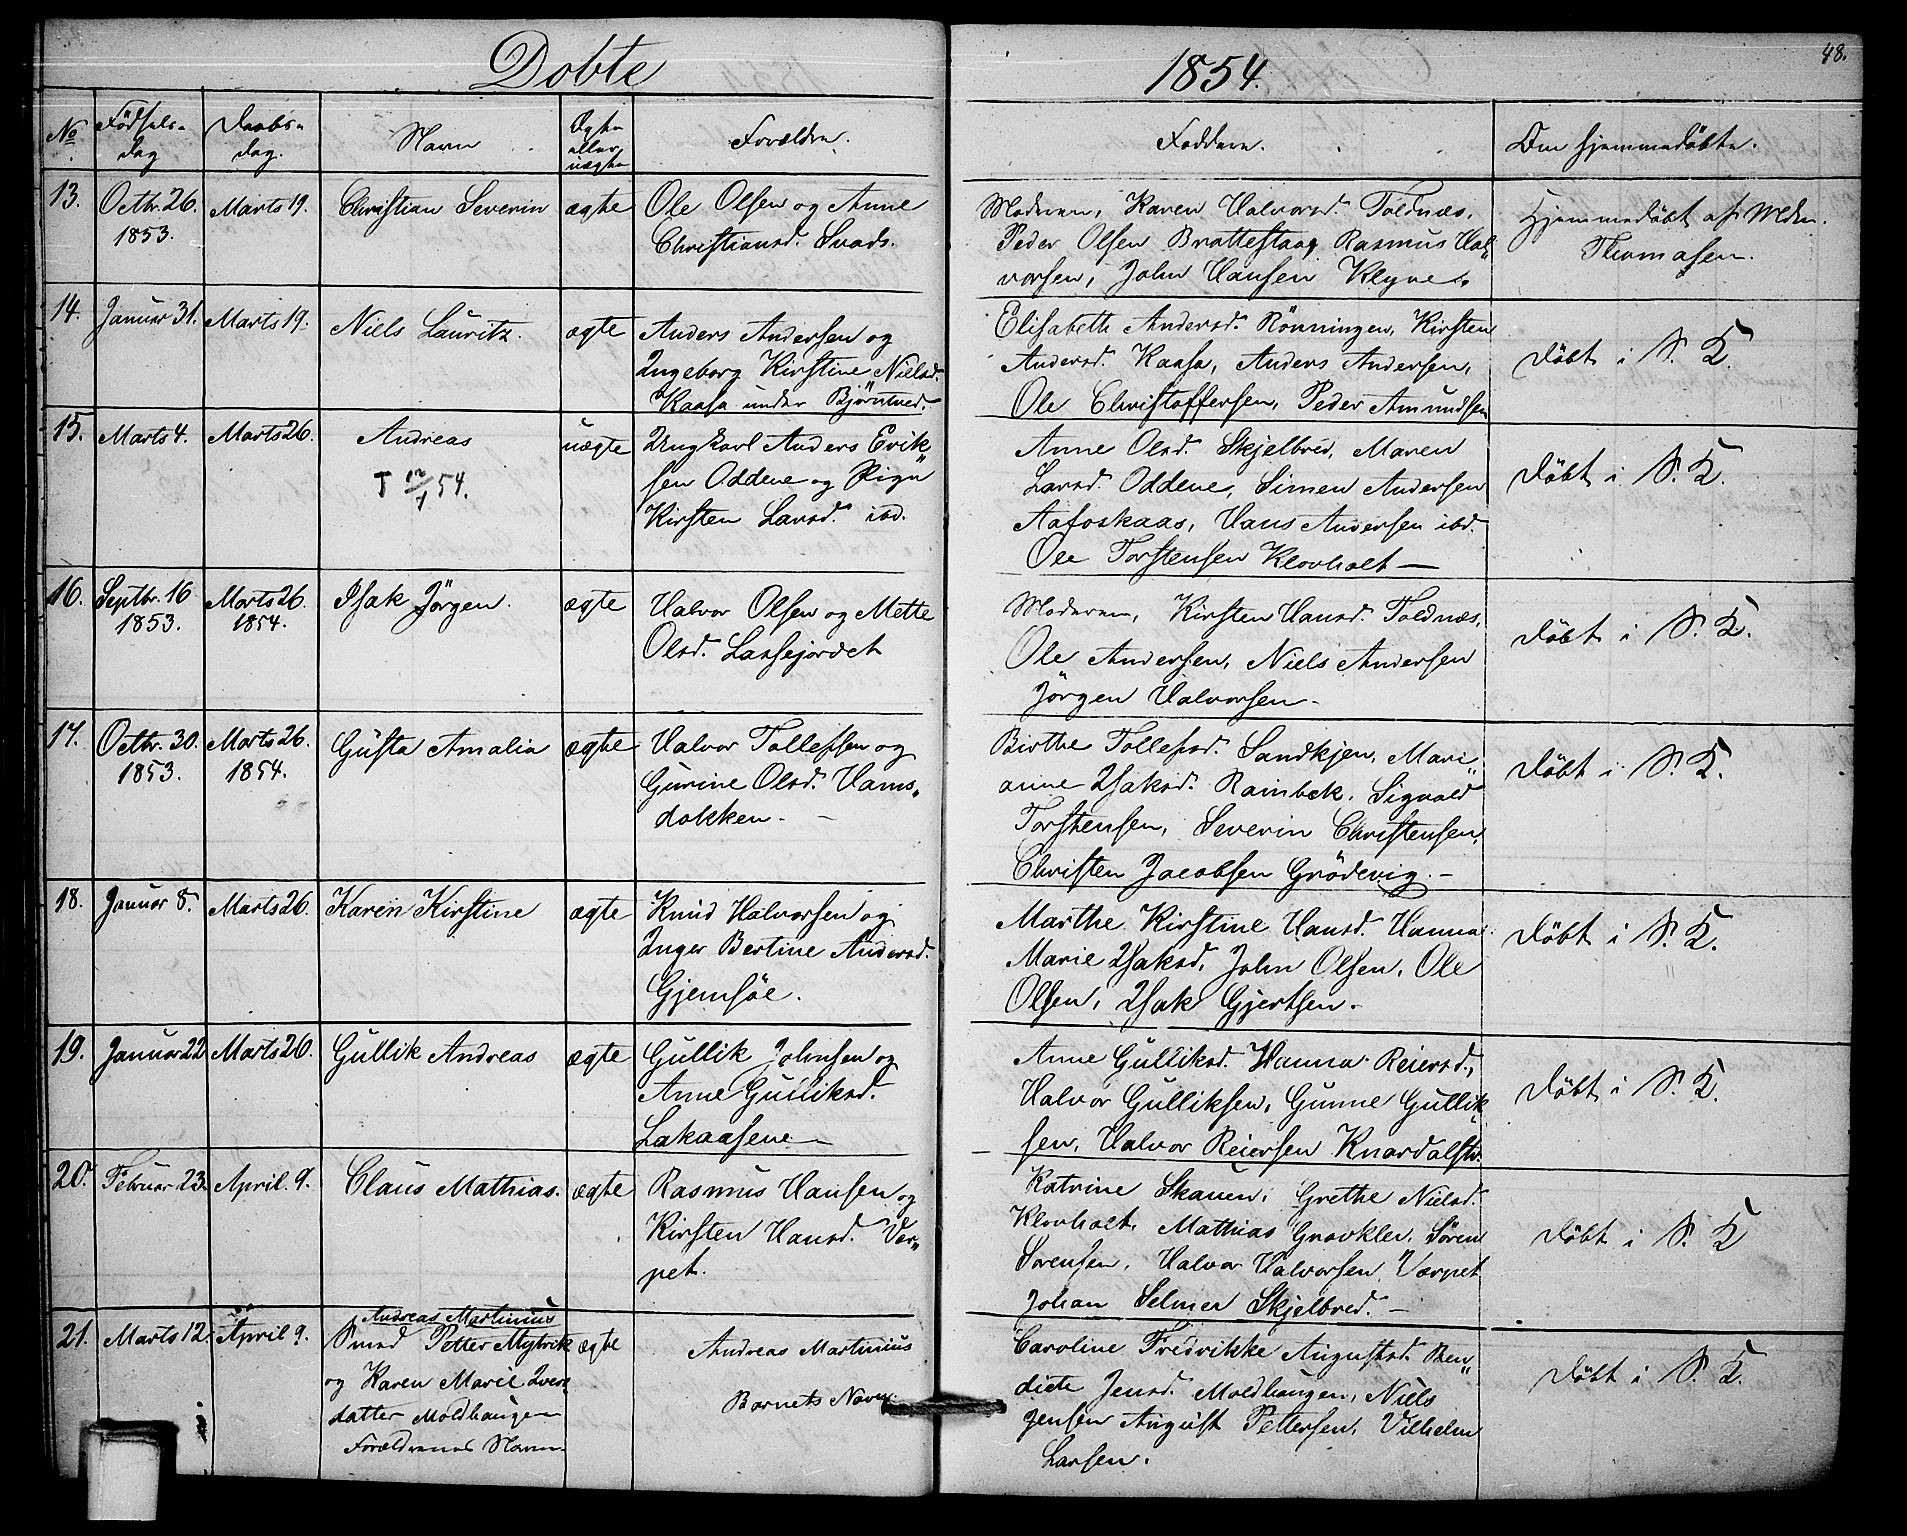 Døbte
1854.
48.
No
Fødsels-
dag
Daabs-
dag.
Navn
Ægte
eller
uægte
Forældre.
Faddere.
Om hjemmedøbte.
13.
Octbr. 26.
1853.
Marts 19.
Christian Severin
ægte
Ole Olsen og Anne
Christiansd. Svads.
Moderen, Karen Halvorsd. Foldnæs,
Peder Olsen Brattestaa, Rasmus Hal-
vorsen, John Hansen Klyve.
Hjemmedøbt af
Thomasen.
14.
Januar 31.
Marts 19.
Niels Lauritz.
ægte
Anders Andersen og
Ingeborg Kirstine Nielsd.
Kaasa under Bjöntved.
Elisabeth Andersd. Rönningen, Kirsten
Andersd. Kaasa, Anders Andersen,
Ole Christoffersen, Peder Amundsen
døbt i S. K.
15.
Marts 4.
Marts 26.
Andreas
54.
uægte
Ungkarl Anders Erik-
sen Oddene og Pigen
Kirsten Larsd. ibd.
Anne Olsd. Skjelbred, Maren
Larsd. Oddene, Simen Andersen
Aafoskaas, Hans Andersen ibd.
Ole Torstensen Klovholt —
døbt i S. K.
16.
Septbr. 16
1853.
Marts 26.
1854.
Isak Jörgen.
ægte
Halvor Olsen og Mette
Olsd. Lassejordet
Moderen, Kirsten Hansd. Foldnæs,
Ole Andersen, Niels Andersen
Jörgen Halvorsen -
døbt i S. K.
17.
Octbr. 30.
1853.
Marts 26.
1854.
Gusta Amalia
ægte
Halvor Tollefsen og
Gurine Olsd. Hams-
dokken -
Birthe Tollefsd. Sandkjen, Mari-
anne Isaksd. Rambek, Sigvald
Torstensen, Severin Christensen,
Christen Jacobsen Grödevig. -
døbt i S. K.
18.
Januar 8.
Marts 26.
Karen Kirstine
ægte
Knud Halvorsen og
Inger Bertine Andersd.
Gjemsöe.
Marthe Kirstine Hansd. Hanna
Marie Isaksd, John Olsen, Ole
Olsen, Isak Gjertsen -
døbt i S. K.
19.
Januar 22
Marts 26.
Gullik Andreas
ægte
Gullik Johnsen og
Anne Gulliksd.
Lakaasene -
Anne Gulliksd. Hanna Reiersd.,
Halvor Gulliksen, Gunne Gullik-
sen, Halvor Reiersen Knardalstr.
døbt i S. K.
20.
Februar 23.
April 9.
Claus Mathias.
ægte
Rasmus Hansen og
Kirsten Hansd. Vær-
pet.
Katrine Skauen, Grethe Nielsd.
Klovholt, Mathias Gravklev, Sören
Sorensen, Halvor Halvorsen Værpet
Johan Selmer Skjelbred. -
døbt i S. K
21.
Marts 12.
April 9.
Andreas Martinius
Smed Petter Myhrik
og Karen Marie Iver-
datter Moldhaugen
Forældrenes Navn
ægte
Andreas Martinius
Barnets Navn.
Caroline Fredrikke Augustsd. Ben-
dicte Jensd. Moldhaugen, Niels
Jensen August Pettersen, Vilhelm
Larsen.
døbt i S. K.